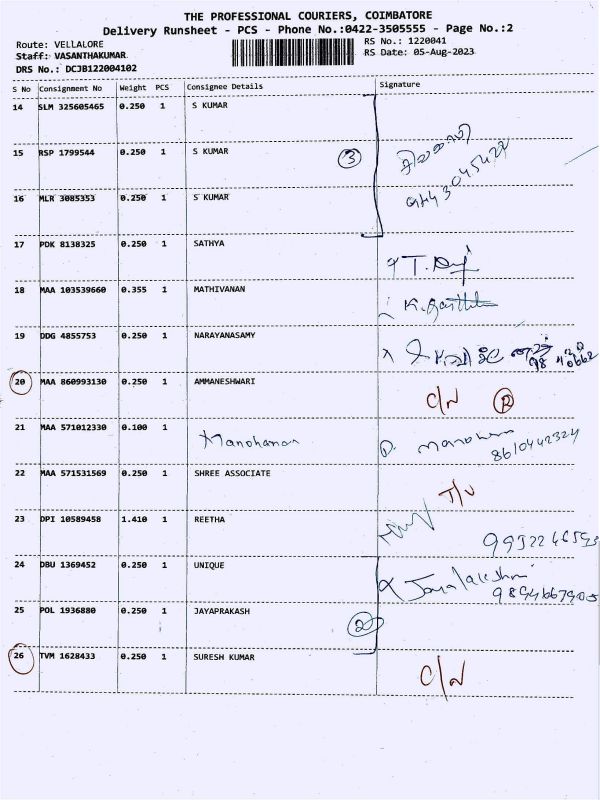 THE PROFESSIONAL COURIERS, COIMBATORE
Delivery Runsheet - PCS - Phone No.:0422-3505555 - Page No.:2
Route: VELLALORE RS No.: 1220041
Staff: VASANTHAKUMAR RS Date: 05-Aug-2023
DRS No.: DCJB122004102
S No Consignment No Weight PCS Consignee Details Signature
14 SLM 325605465 0.250 1 S KUMAR
15 RSP 1799544 0.250 1 S KUMAR 3
16 MLR 3085353 0.250 1 S KUMAR
17 PDK 8138325 0.250 1 SATHYA
18 MAA 103539660 0.355 1 MATHIVANAN
19 DDG 4855753 0.250 1 NARAYANASAMY
20 MAA 860993130 0.250 1 AMMANESHWARI C/N R
21 MAA 571012330 0.100 1 Manoharan 8610442324
22 MAA 571531569 0.250 1 SHREE ASSOCIATE
23 DPI 10589458 1.410 1 REETHA
24 DBU 1369452 0.250 1 UNIQUE Jayalakshmi
25 POL 1936880 0.250 1 JAYAPRAKASH 2
26 TVM 1628433 0.250 1 SURESH KUMAR C/N